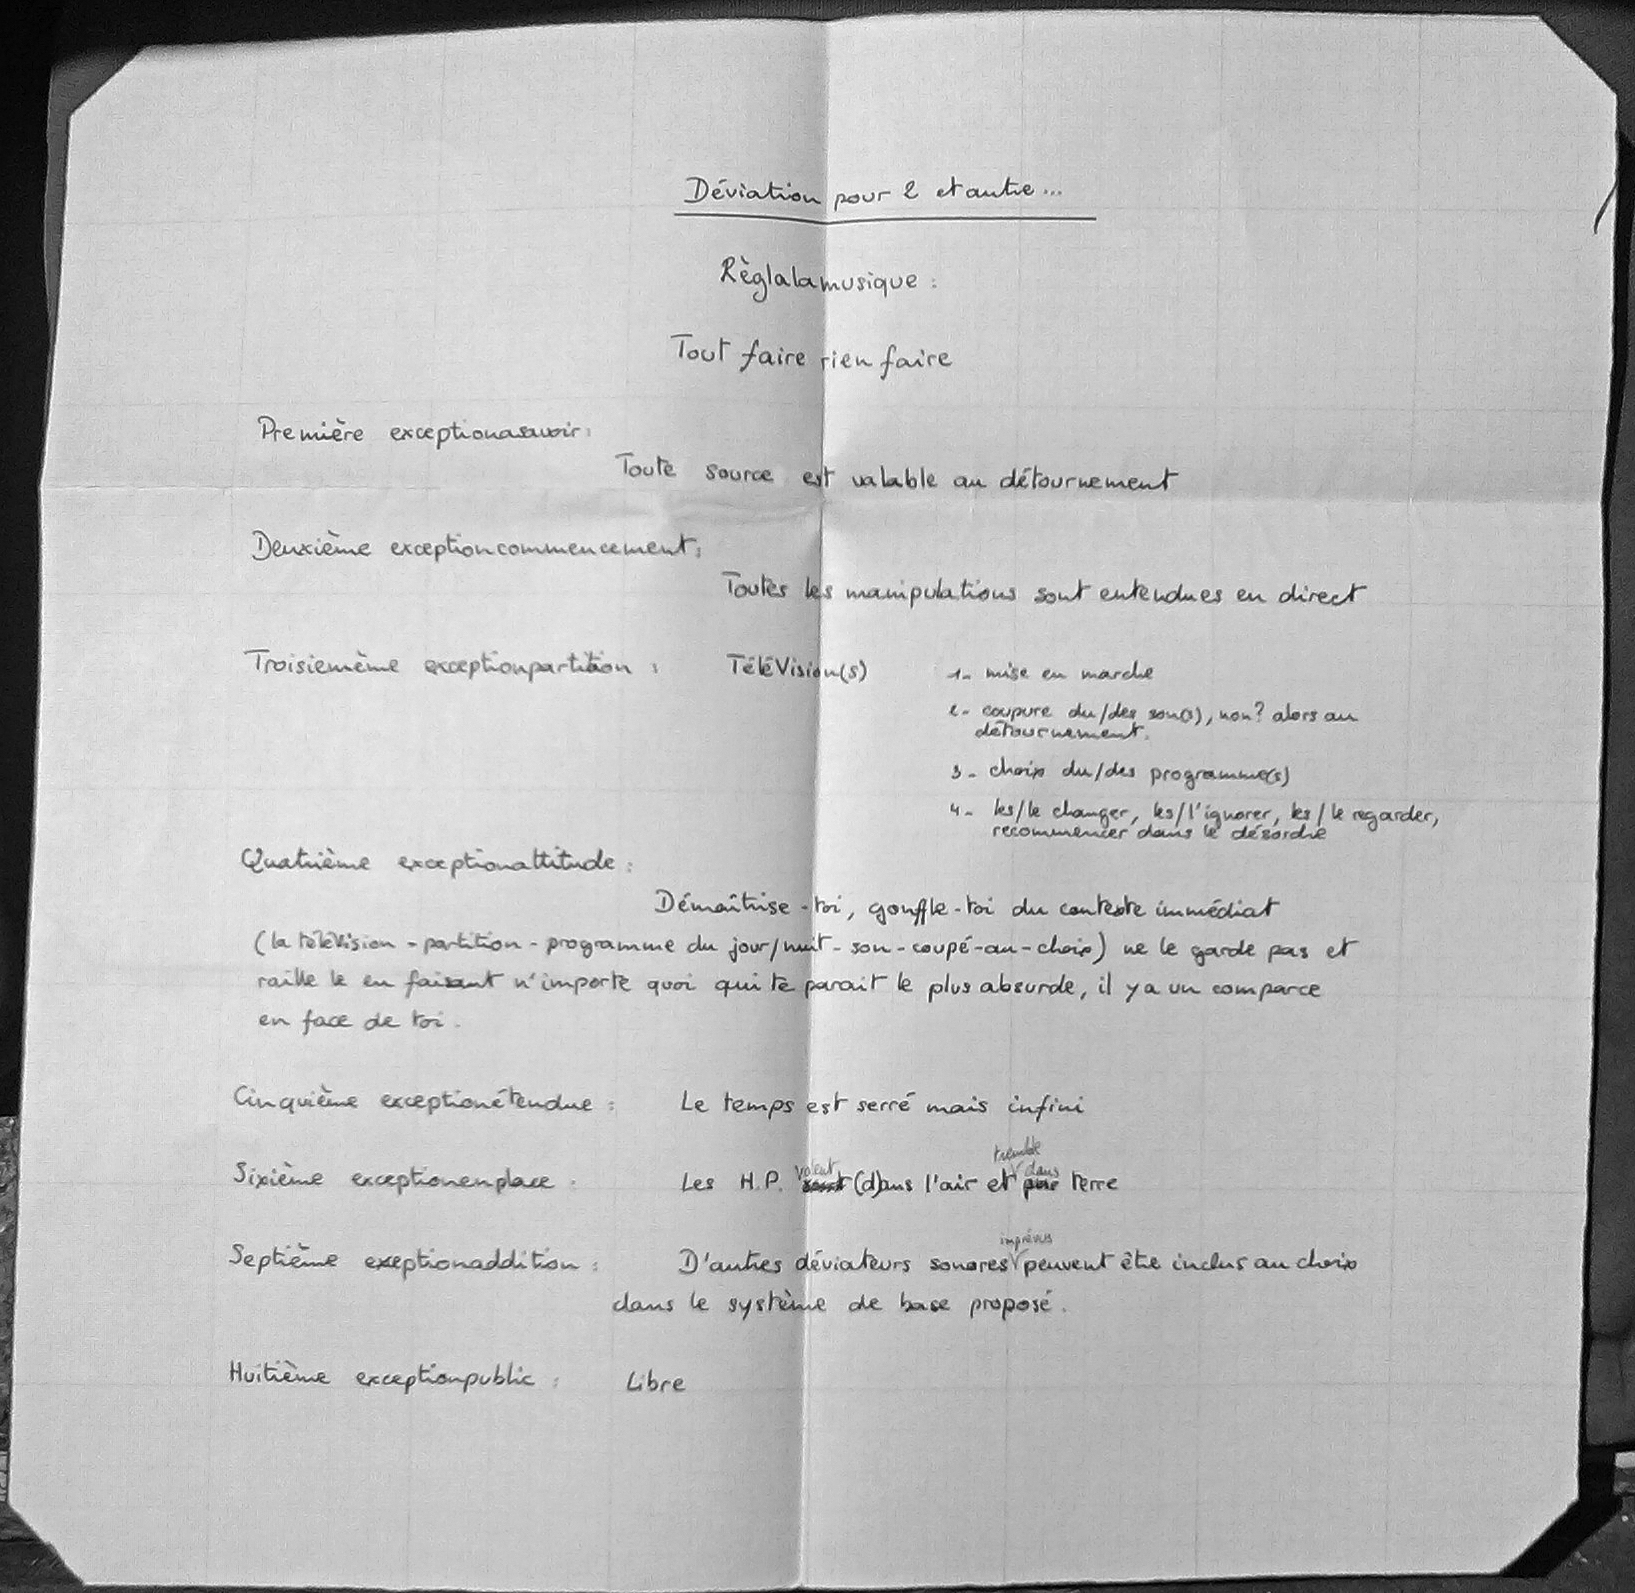 Déviation pour 2 et autre...
Règlalamusique :
Tout faire rien faire
Première exceptionasavoir :
Toute source est valable au détournement
Deuxième exceptioncommencement :
Toutes les manipulations sont entendues en direct
Troisiemème exceptionpartition : TéléVision(s) 1- mise en marche
2- coupure du/des son(s), non? alors au
détournement.
3- choix du/des programme(s)
4- les/le changer, les/l'ignorer, les/le regarder,
recommencer dans le désordre
Quatrième exceptionattitude :
Démaîtrise-toi, gonffle-toi du contexte immédiat
(la télévision-partition-programme du jour/nuit-son-coupé-au-choix) ne le garde pas et
raille le en faisant n'importe quoi qui te parait le plus absurde, il y a un comparce
en face de toi.
Cinquième exceptionétendue : Le temps est serré mais infini
tremble
volent dans
Sixième exceptionenplace : Les H.P. (d)ans l'air et terre
imprévus
Septième exeptionaddition : D'autres déviateurs sonores peuvent être inclus au choix
dans le système de base proposé.
Huitième exceptionpublic : Libre